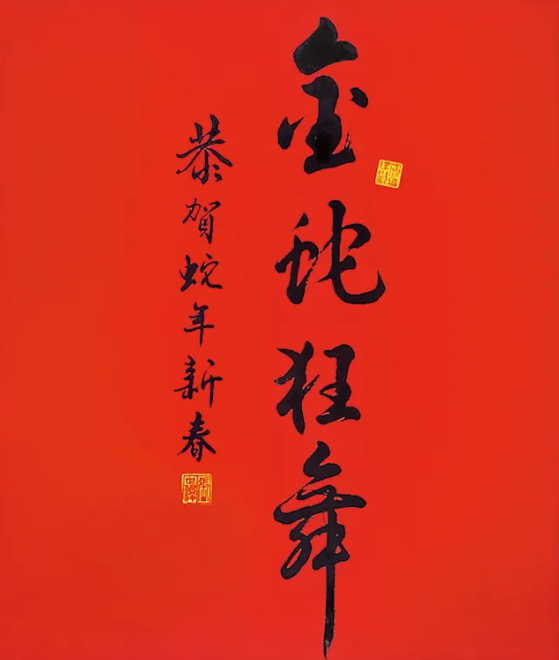 金蛇狂舞
恭贺蛇年新春